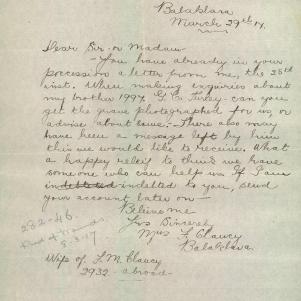 Balaklava
March 29th 17.
Dear Sir or Madam
- You have already in your
possession a letter from me, the 26th
inst. When making enquiries about
my brother 1997 G. C. Turley - can you
get the grave photographed for us or
advise about same, - There also may
have been a message left by him
this we would like to receive. What
a happy relief to think we have
someone who can help us. If I am
indebted indebted to you, send
your account later on -
Believe me
Yrs Sincerely
Mrs F. Clancy
Balaklava.
Wife of F. M. Clancy
2932 - abroad -
232-46
8.3.17